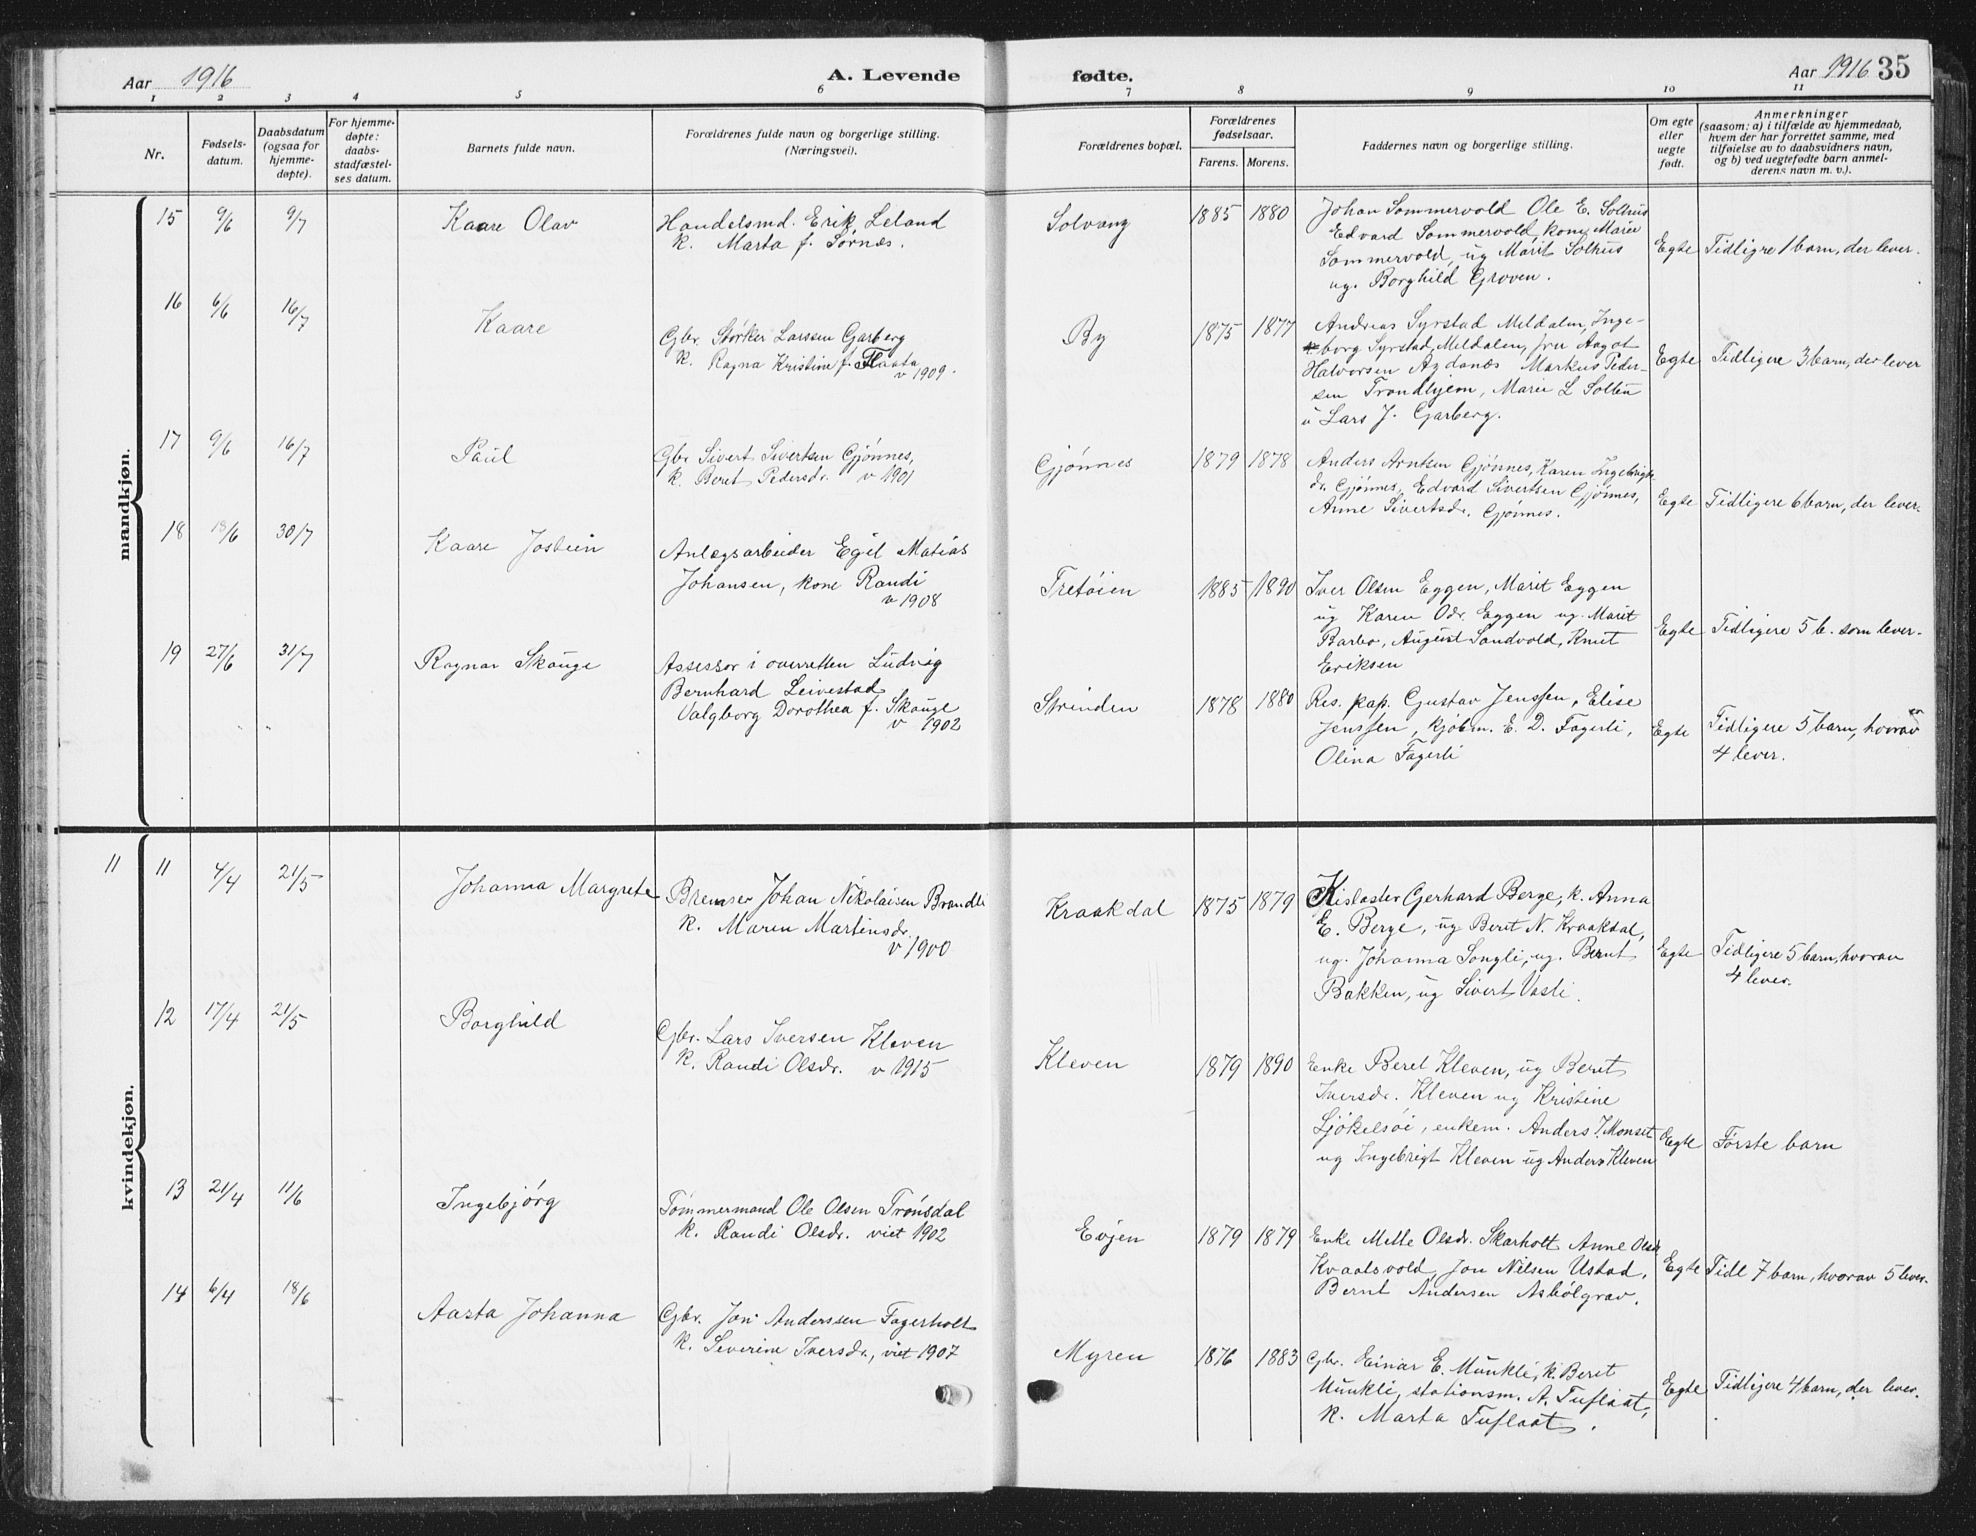 Aar 1916
A. Levende
1 2 3 4 5 6
Nr.
Fødsels-
datum.
Daabsdatum
(ogsaa for
hjemme-
døpte).
For hjemme-
døpte:
daabs-
stadfæstel-
ses datum.
Barnets fulde navn.
Forældrenes fulde navn og borgerlige stilling.
(Næringsvei).
mandkjøn.
15 9/6 9/7 Kaare Olav
Handelsmd. Erik Leland
k. Marta f. Sørnæs.
16 6/6 16/7 Kaare
Gbr. Størker Larssen Garberg
k. Ragna Kristine f. Flaata
v 1909.
17 9/6 16/7 Paul
Gbr Sivert Sivertsen Gjønnes,
k. Beret Pedersdr. v 1901
18 18/6 30/7 Kaare Jostein
Anlægsarbeider Egil Matias
Johansen, kone Randi
v 1908
19 27/6 31/7 Ragnar Skauge
Assessor i overretten Ludvig
Bernhard Leivestad
Valgborg Dorothea f. Skauge
v 1902
kvindekjøn.
11 11 4/4 21/5 Johanna Margrete
Bremser Johan Nikolaisen Brandli
k. Maren Martinsdr.
v 1900
12 17/4 21/5 Borghild
Gbr. Lars Iversen Kleven
k. Randi Olsdr. v 1915
13 21/4 11/6 Ingebjørg
Tømmermand Ole Olsen Trønsdal
k. Randi Olsdr. viet 1902
14 6/4 18/6 Aasta Johanna
Gbr. Jon Anderssen Fagerholt
k. Severine Iversdr., viet 1907
fødte.
Aar 1916 35
7 8 9 10 11
Forældrenes bopæl.
Forældrenes
fødselsaar.
Farens. Morens.
Faddernes navn og borgerlige stilling.
Om egte
eller
uegte
født.
Anmerkninger
(saasom: a) i tilfælde av hjemmedaab,
hvem der har forrettet samme, med
tilføielse av to daabsvidners navn,
og b) ved uegtefødte barn anmel-
derens navn m. v.).
Solvang 1885 1880
Johan Sommervold Ole E. Solhus
Edvard Sommervold kone Marie
Sommervold, ug Marit Solhus
ug. Borghild Groven.
Egte Tidligre 1 barn, der lever.
By 1875 1877
Andreas Syrstad Meldalen, Inge-
borg Syrstad, Meldalen, fru Aagot
Halvorsen Agdenæs Markus Peder-
sen Trondhjem, Marie L Solten
u Lars J. Garberg.
Egte Tidligere 3 barn, der lever
Gjønnes 1879 1878
Anders Arntsen Gjønnes, Karen Ingebrigts-
dr. Gjønnes, Edvard Sivertsen Gjønnes,
Anne Sivertsdr. Gjønnes.
Egte Tidligere 6 barn, der lever.
Tretøien 1885 1890
Iver Olsen Eggen, Marit Eggen
ug Karen Odr. Eggen ug. Marit
Barbo, August Sandvold, Knut
Eriksen
Egte Tidligere 5 b. som lever.
Strinden 1878 1880
Res. kap. Gustav Jenssen, Elise
Jenssen, kjøbm. E. D. Fagerli,
Olina Fagerli
Egte Tidligere 5 barn, hvorav
4 lever.
Kraakdal 1875 1879
Gerhard Berge, k. Anna
E. Berge, ug Berit N. Kraakdal,
ug. Johanna Songli, ug. Bernt
Bakken, ug Sivert Vasli.
Egte Tidligere 5 barn, hvorav
4 lever.
Kleven 1879 1890
Enke Beret Kleven, ug Berit
Iversdr. Kleven ug Kristine
Sjøkelsøi, enkem. Anders J. Monset
ug Ingebrigt Kleven ug Anders Kleven
Egte Første barn
Evjen 1879 1879
Enke Mette Olsdr. Skarholt Anne Olsdr
Kvaalsvold, Jon Nilsen Ustad,
Bernt Andersen Asbølgrav.
Egte Tidl 7 barn, hvorav 5 lever.
Myren 1876 1883
Gbr. Einar E. Munkli, k. Beret
Munkli, stationsm. A. Tuflaat,
k. Marta Tuflaat.
Egte Tidligere 4 barn, der lever.